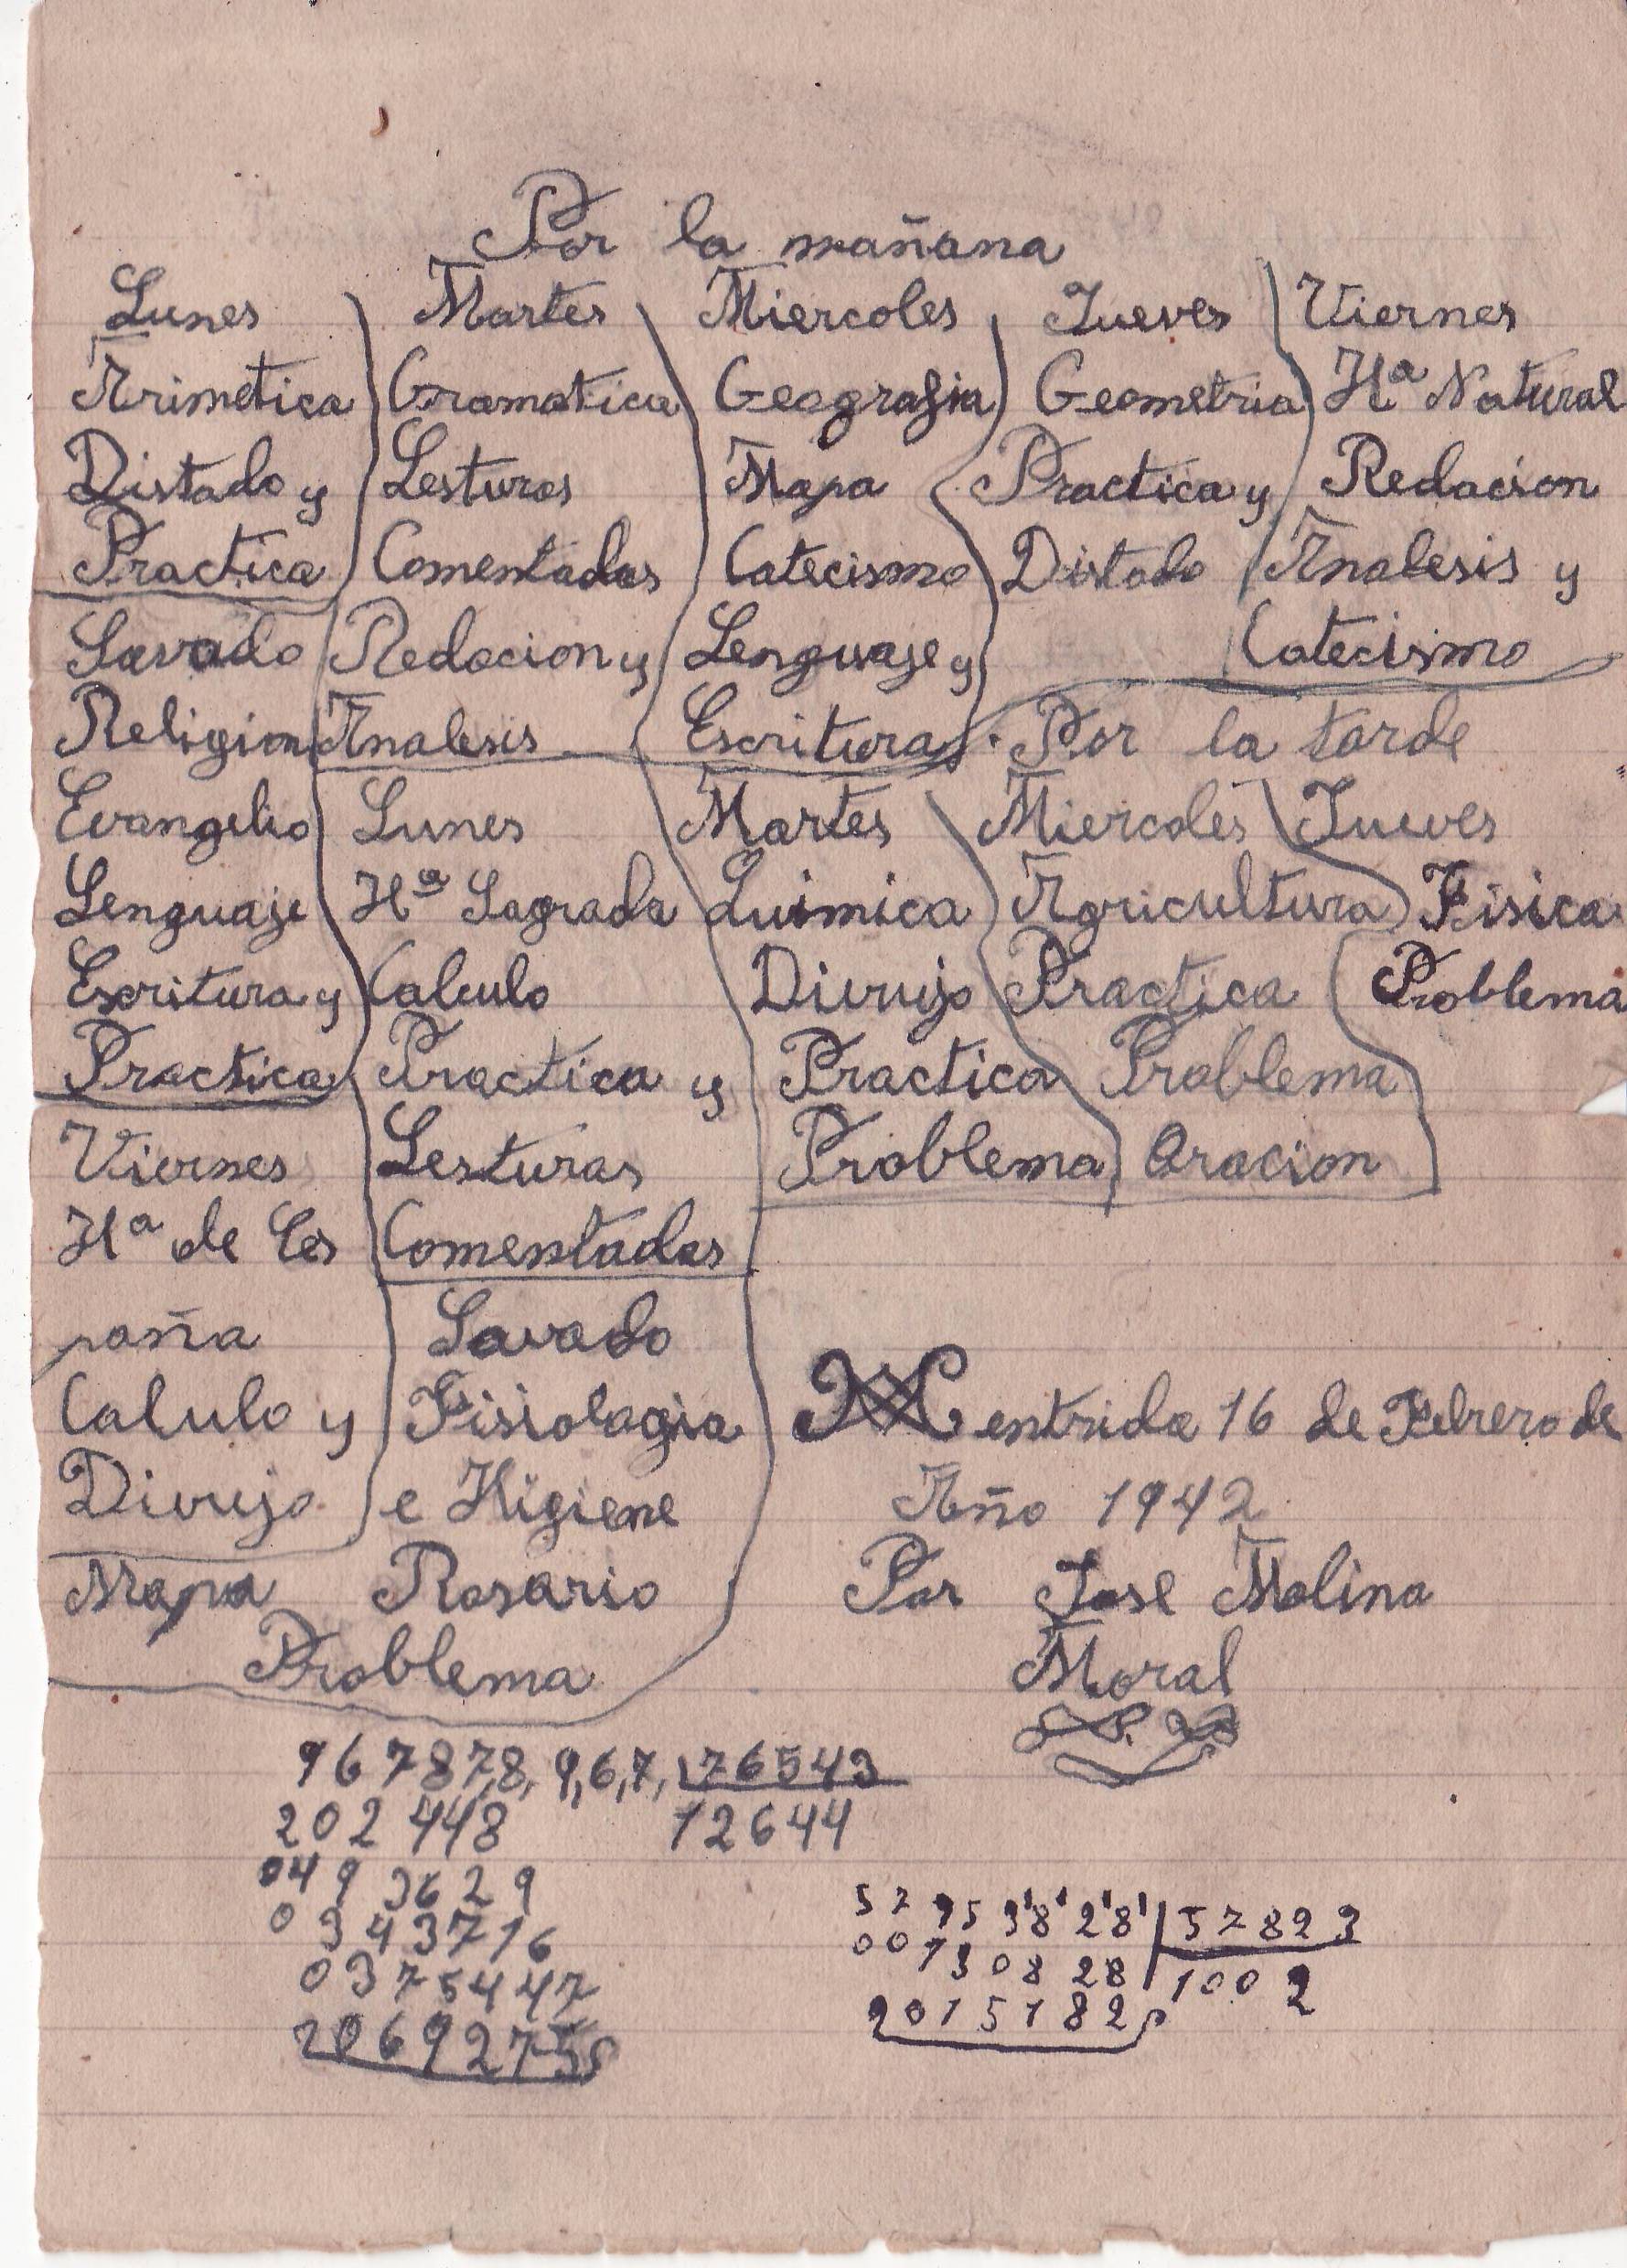 Por la mañana
Lunes Martes Miercoles Jueves Viernes
Arimetica Gramatica Geografia Geometria Hª Natural
Distado y Lesturas Mapa Practica y Redacion
Practica Comentadas Catecismo Distado Analesis y
Savado Redacion y Lenguaje y Catecismo
Religion Analesis Escritura Por la tarde
Evangelio Lunes Martes Miercoles Jueves
Lenguaje Hª Sagrada Quimica Agricultura Fisica
Escritura y Calculo Divujo Practica Problema
Practica Practica y Practica Problema
Viernes Lesturas Problema Oracion
Hª de Es Comentadas
paña Savado
Calulo y Fisiologia entrida 16 de Febrero de
Divujo e Higiene Año 1942
Mapa Rosario Por Jose Molina
Problema Moral
967878,9,6,7, 76543
202448 12644
0493629
0343716 57953'8'2'8' 57823
0375447 00130828 1002
2069275 2015182